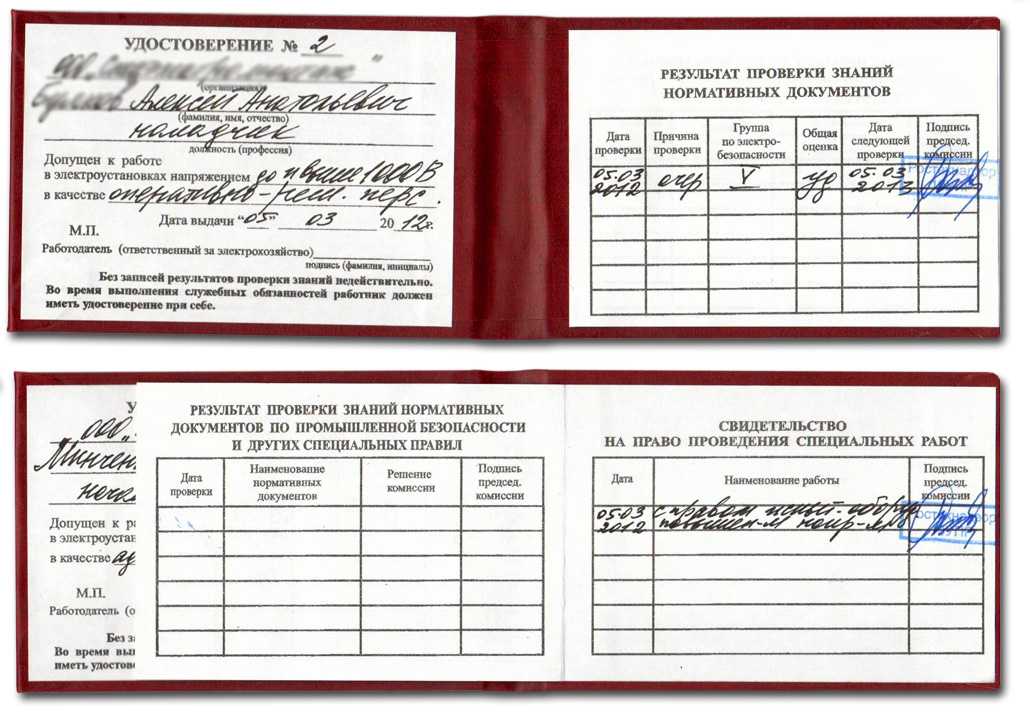 УДОСТОВЕРЕНИЕ № 2
(организация)
Алексей Анатольевич
(фамилия, имя, отчество)
наладчик
должность (профессия)
Допущен к работе
в электроустановках напряжением до и выше 1000 В
в качестве оперативно-рем. перс.
Дата выдачи "05" 03 2012г.
М.П.
Работодатель (ответственный за электрохозяйство)
подпись (фамилия, инициалы)
Без записей результатов проверки знаний недействительно.
Во время выполнения служебных обязанностей работник должен
иметь удостоверение при себе.
РЕЗУЛЬТАТ ПРОВЕРКИ ЗНАНИЙ
НОРМАТИВНЫХ ДОКУМЕНТОВ
Дата проверки Причина проверки Группа по электро-безопасности Общая оценка Дата следующей проверки Подпись председ. комиссии
05.03 2012 очер V уд 05.03 2013
У
ООО "
Минчен
нача
Допущен к ра
в электроустан
в качестве ад
М.П.
Работодатель (о
Без за
Во время вып
иметь удостове
РЕЗУЛЬТАТ ПРОВЕРКИ ЗНАНИЙ НОРМАТИВНЫХ
ДОКУМЕНТОВ ПО ПРОМЫШЛЕННОЙ БЕЗОПАСНОСТИ
И ДРУГИХ СПЕЦИАЛЬНЫХ ПРАВИЛ
Дата проверки Наименование нормативных документов Решение комиссии Подпись председ. комиссии
СВИДЕТЕЛЬСТВО
НА ПРАВО ПРОВЕДЕНИЯ СПЕЦИАЛЬНЫХ РАБОТ
Дата Наименование работы Подпись председ. комиссии
05.03 с правом испыт. обору
2012 повышен-м напр-м